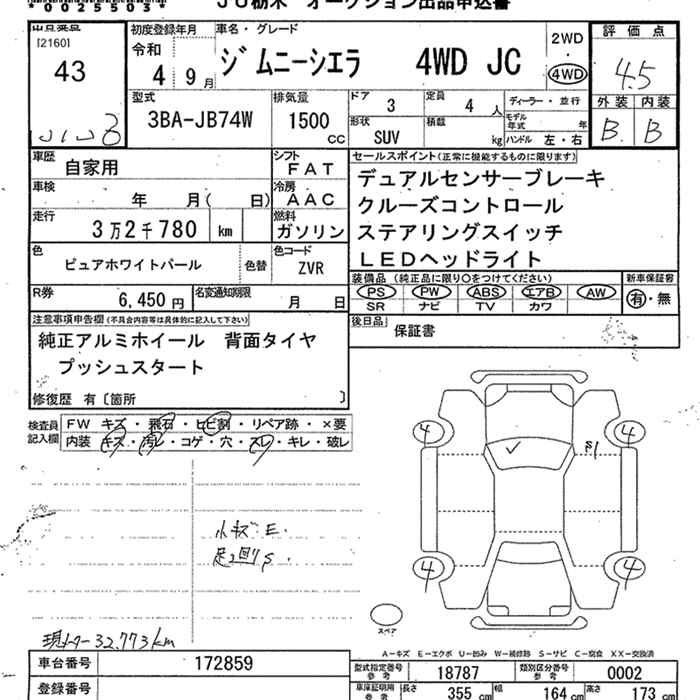 *0025503*
JU栃木 オークション出品申込書
[2160]
43
初度登録年月
令和
4 9月
車名・グレード
ジムニーシエラ 4WD JC
2WD
・
4WD
評価点
4.5
外装 内装
B B
型式
3BA-JB74W
排気量
1500
cc
ドア
3
定員
4 人
ディーラー・並行
形状
SUV
積載
kg
モデル年式 年
ハンドル 左・右
車歴
自家用
シフト
FAT
車検
年 月( 日)
冷房
AAC
走行
3万2千780 km
燃料
ガソリン
色
ピュアホワイトパール
色替
色コード
ZVR
R券
6,450円
名変通知期限
月 日
セールスポイント(正常に機能するものに限ります)
デュアルセンサーブレーキ
クルーズコントロール
ステアリングスイッチ
LEDヘッドライト
装備品 (純正品に限り○をつけてください)
PS PW ABS エアB AW
SR ナビ TV カワ
新車保証書
有・無
後日品
保証書
注意事項申告欄(不具合内容等は具体的に記入して下さい)
純正アルミホイール 背面タイヤ
プッシュスタート
修復歴 有〔箇所 〕
検査員記入欄
FW キズ・飛石・ヒビ割・リペア跡・×要
内装 キズ・汚レ・コゲ・穴・スレ・キレ・破レ
小キズ E.
足回りS.
現メーター32,773km
4 4
S1
4 4
スペア
A-キズ E-エクボ U-凹み W-補修跡 S-サビ C-腐食 XX-交換済
車台番号 172859
登録番号
型式指定番号 参考 18787
類別区分番号 参考 0002
車庫証明用 参考 長さ 355 cm 幅 164 cm 高さ 173 cm